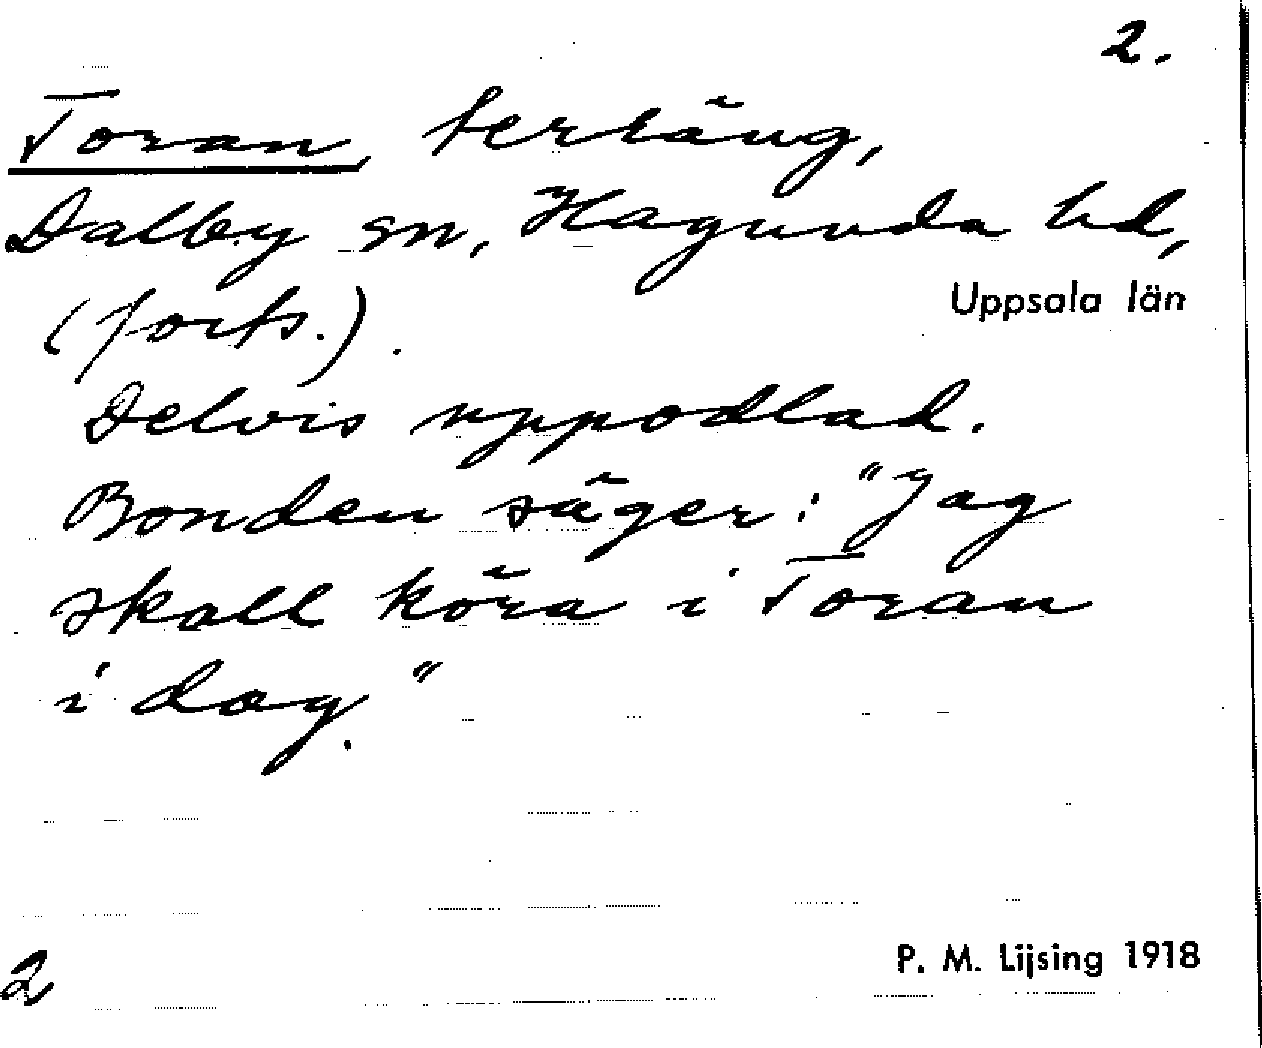 2.
Toran, terräng,
Dalby sn, Hagunda hd,
Uppsala län
(forts.).
Delvis uppodlad.
Bonden säger: "Jag
skall köra i Toran
i dag."
P. M. Lijsing 1918
2